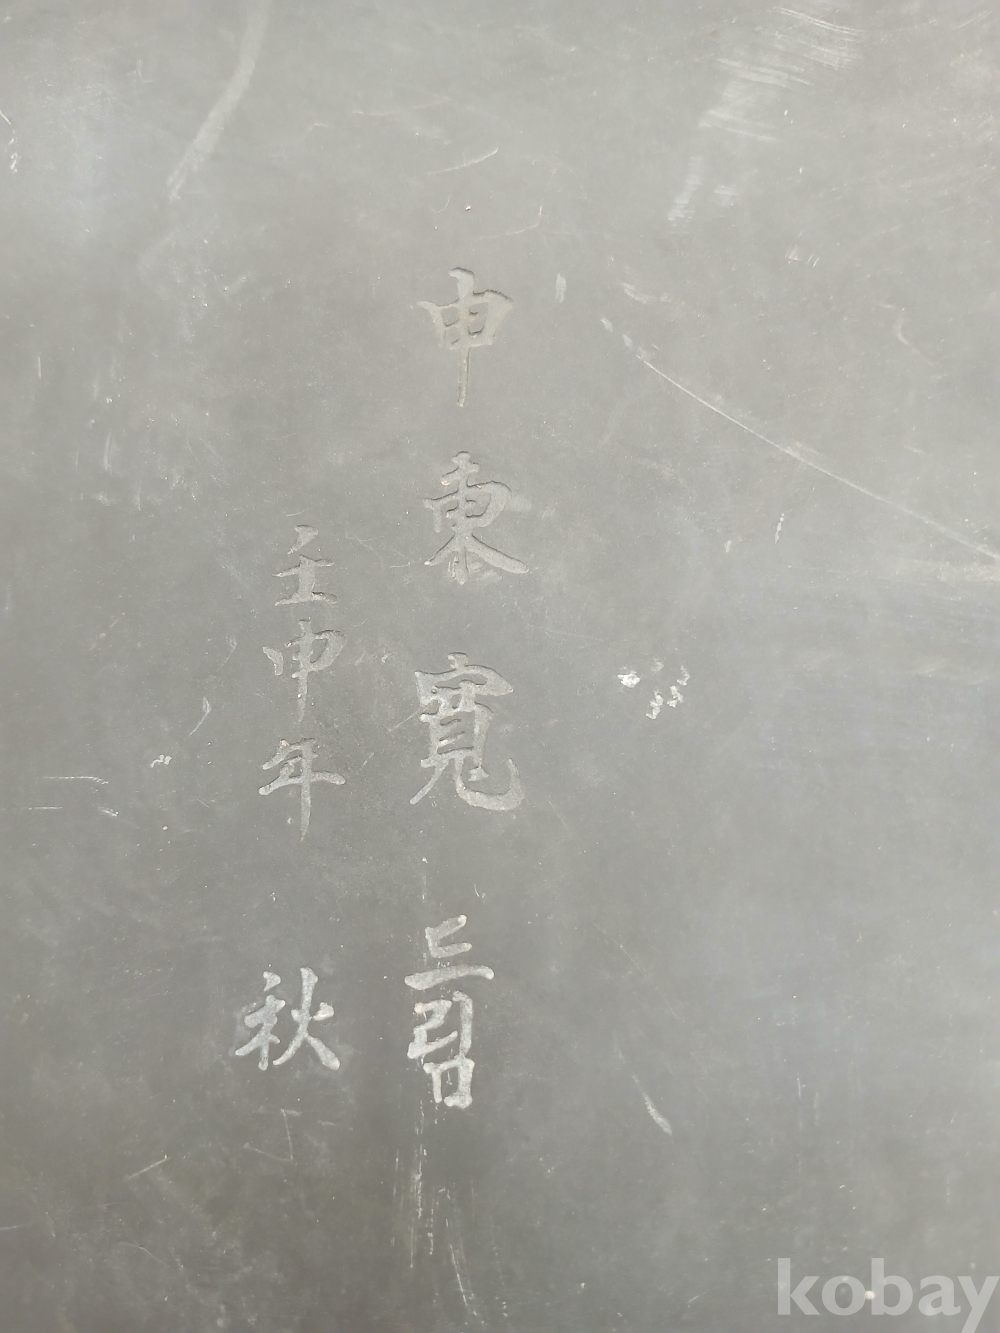 申東寬 드림
壬申年 秋
kobay